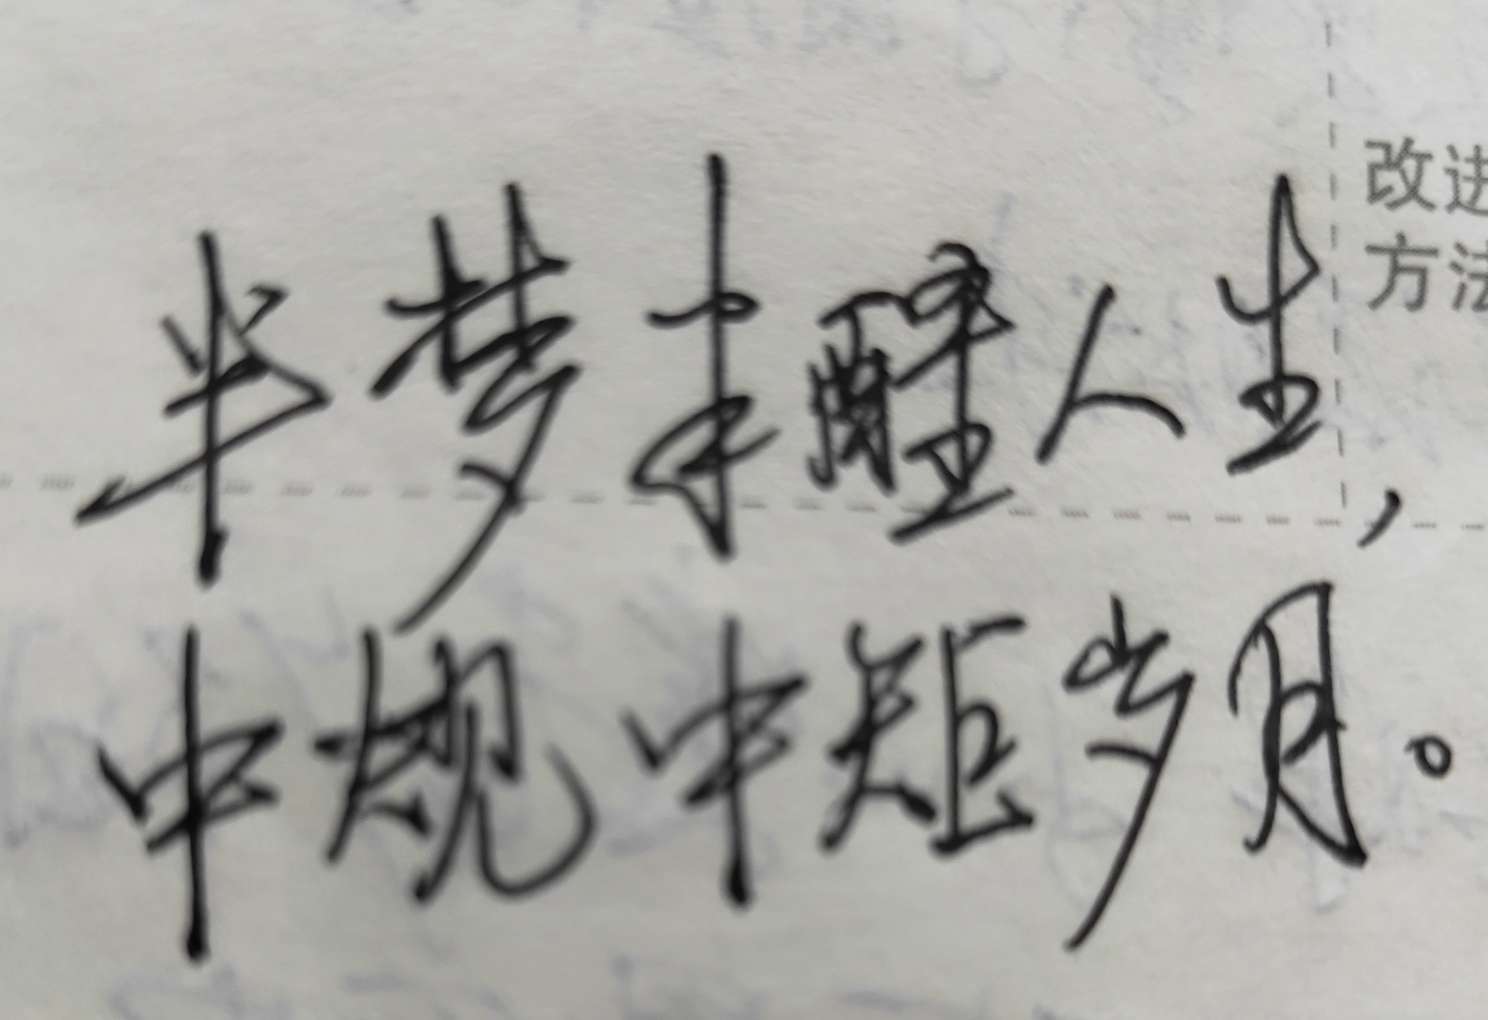 改进
方法
半梦半醒人生,
中规中矩岁月。